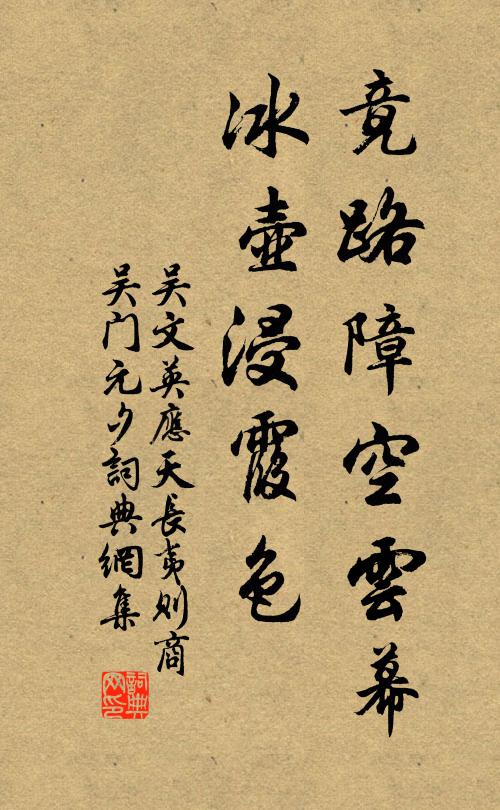 竟路障空雲幕
冰壺浸霞色
吴文英應天長夷則商
吴门元夕詞典網集
詞典网印